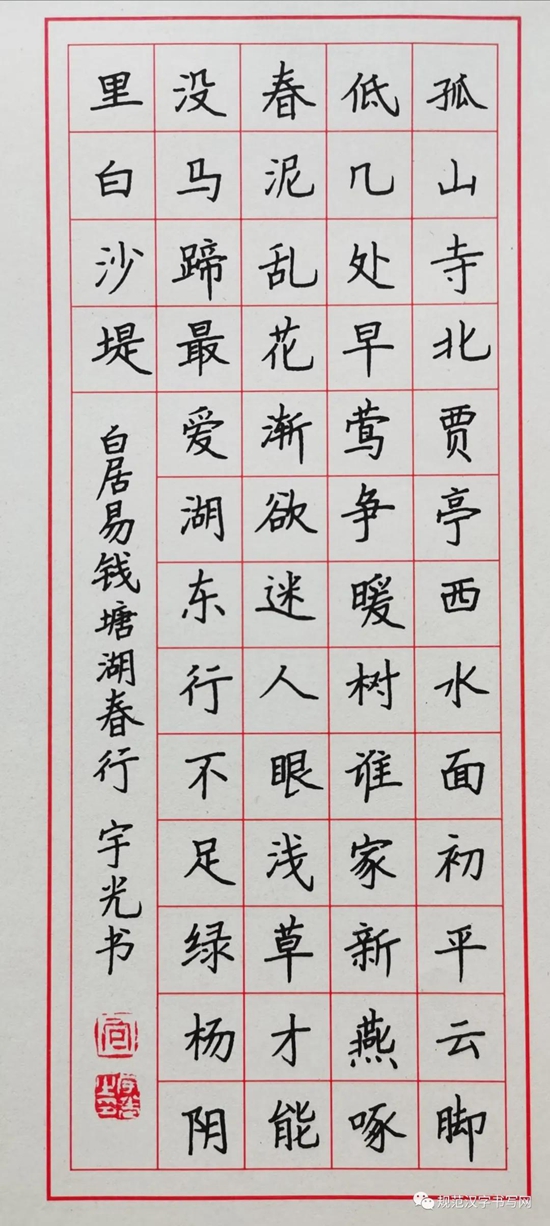 孤山寺北贾亭西水面初平云脚
低几处早莺争暖树谁家新燕啄
春泥乱花渐欲迷人眼浅草才能
没马蹄最爱湖东行不足绿杨阴
里白沙堤
白居易钱塘湖春行 宇光书
规范汉字书写网